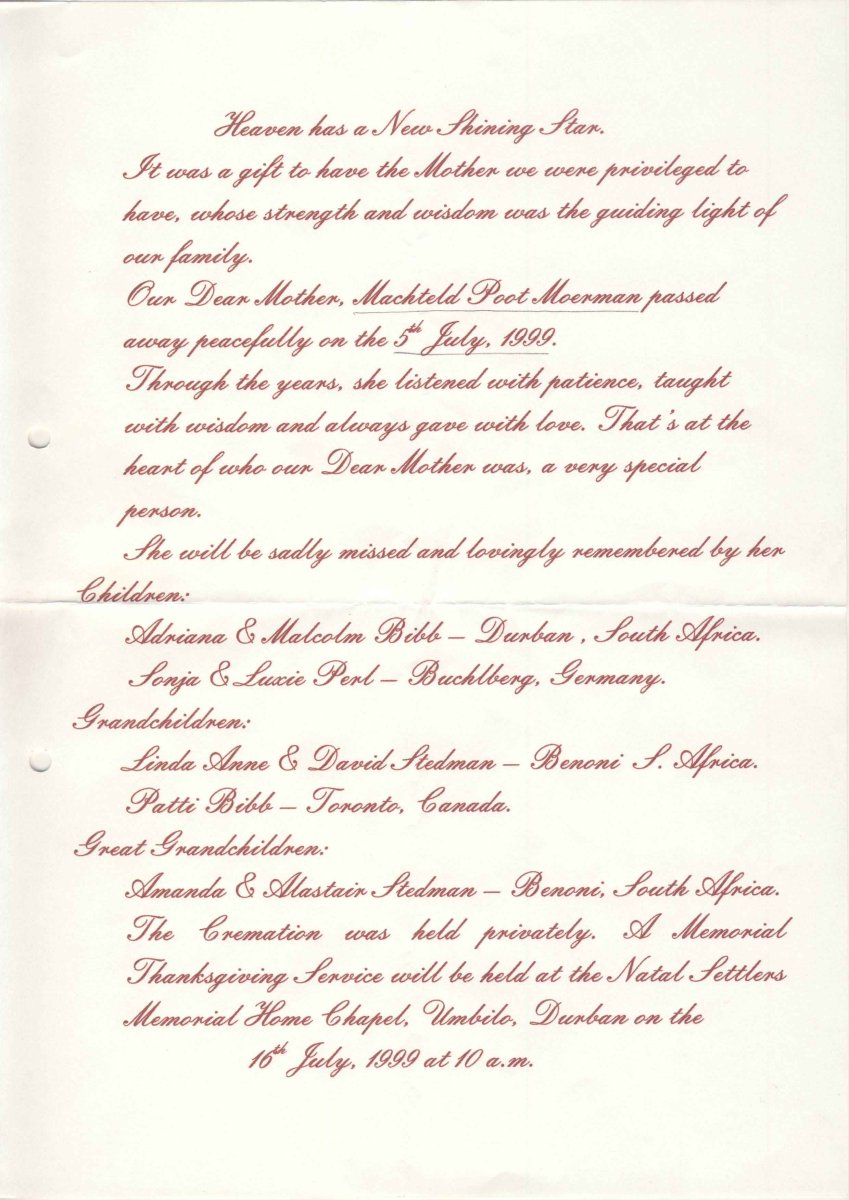 Heaven has a New Shining Star.
It was a gift to have the Mother we were privileged to
have, whose strength and wisdom was the guiding light of
our family.
Our Dear Mother, Machteld Poot Moerman passed
away peacefully on the 5th July, 1999.
Through the years, she listened with patience, taught
with wisdom and always gave with love. That's at the
heart of who our Dear Mother was, a very special
person.
She will be sadly missed and lovingly remembered by her
Children:
Adriana & Malcolm Bibb – Durban , South Africa.
Sonja & Luxie Perl – Buchlberg, Germany.
Grandchildren:
Linda Anne & David Stedman – Benoni S. Africa.
Patti Bibb – Toronto, Canada.
Great Grandchildren:
Amanda & Alastair Stedman – Benoni, South Africa.
The Cremation was held privately. A Memorial
Thanksgiving Service will be held at the Natal Settlers
Memorial Home Chapel, Umbilo, Durban on the
16th July, 1999 at 10 a.m.